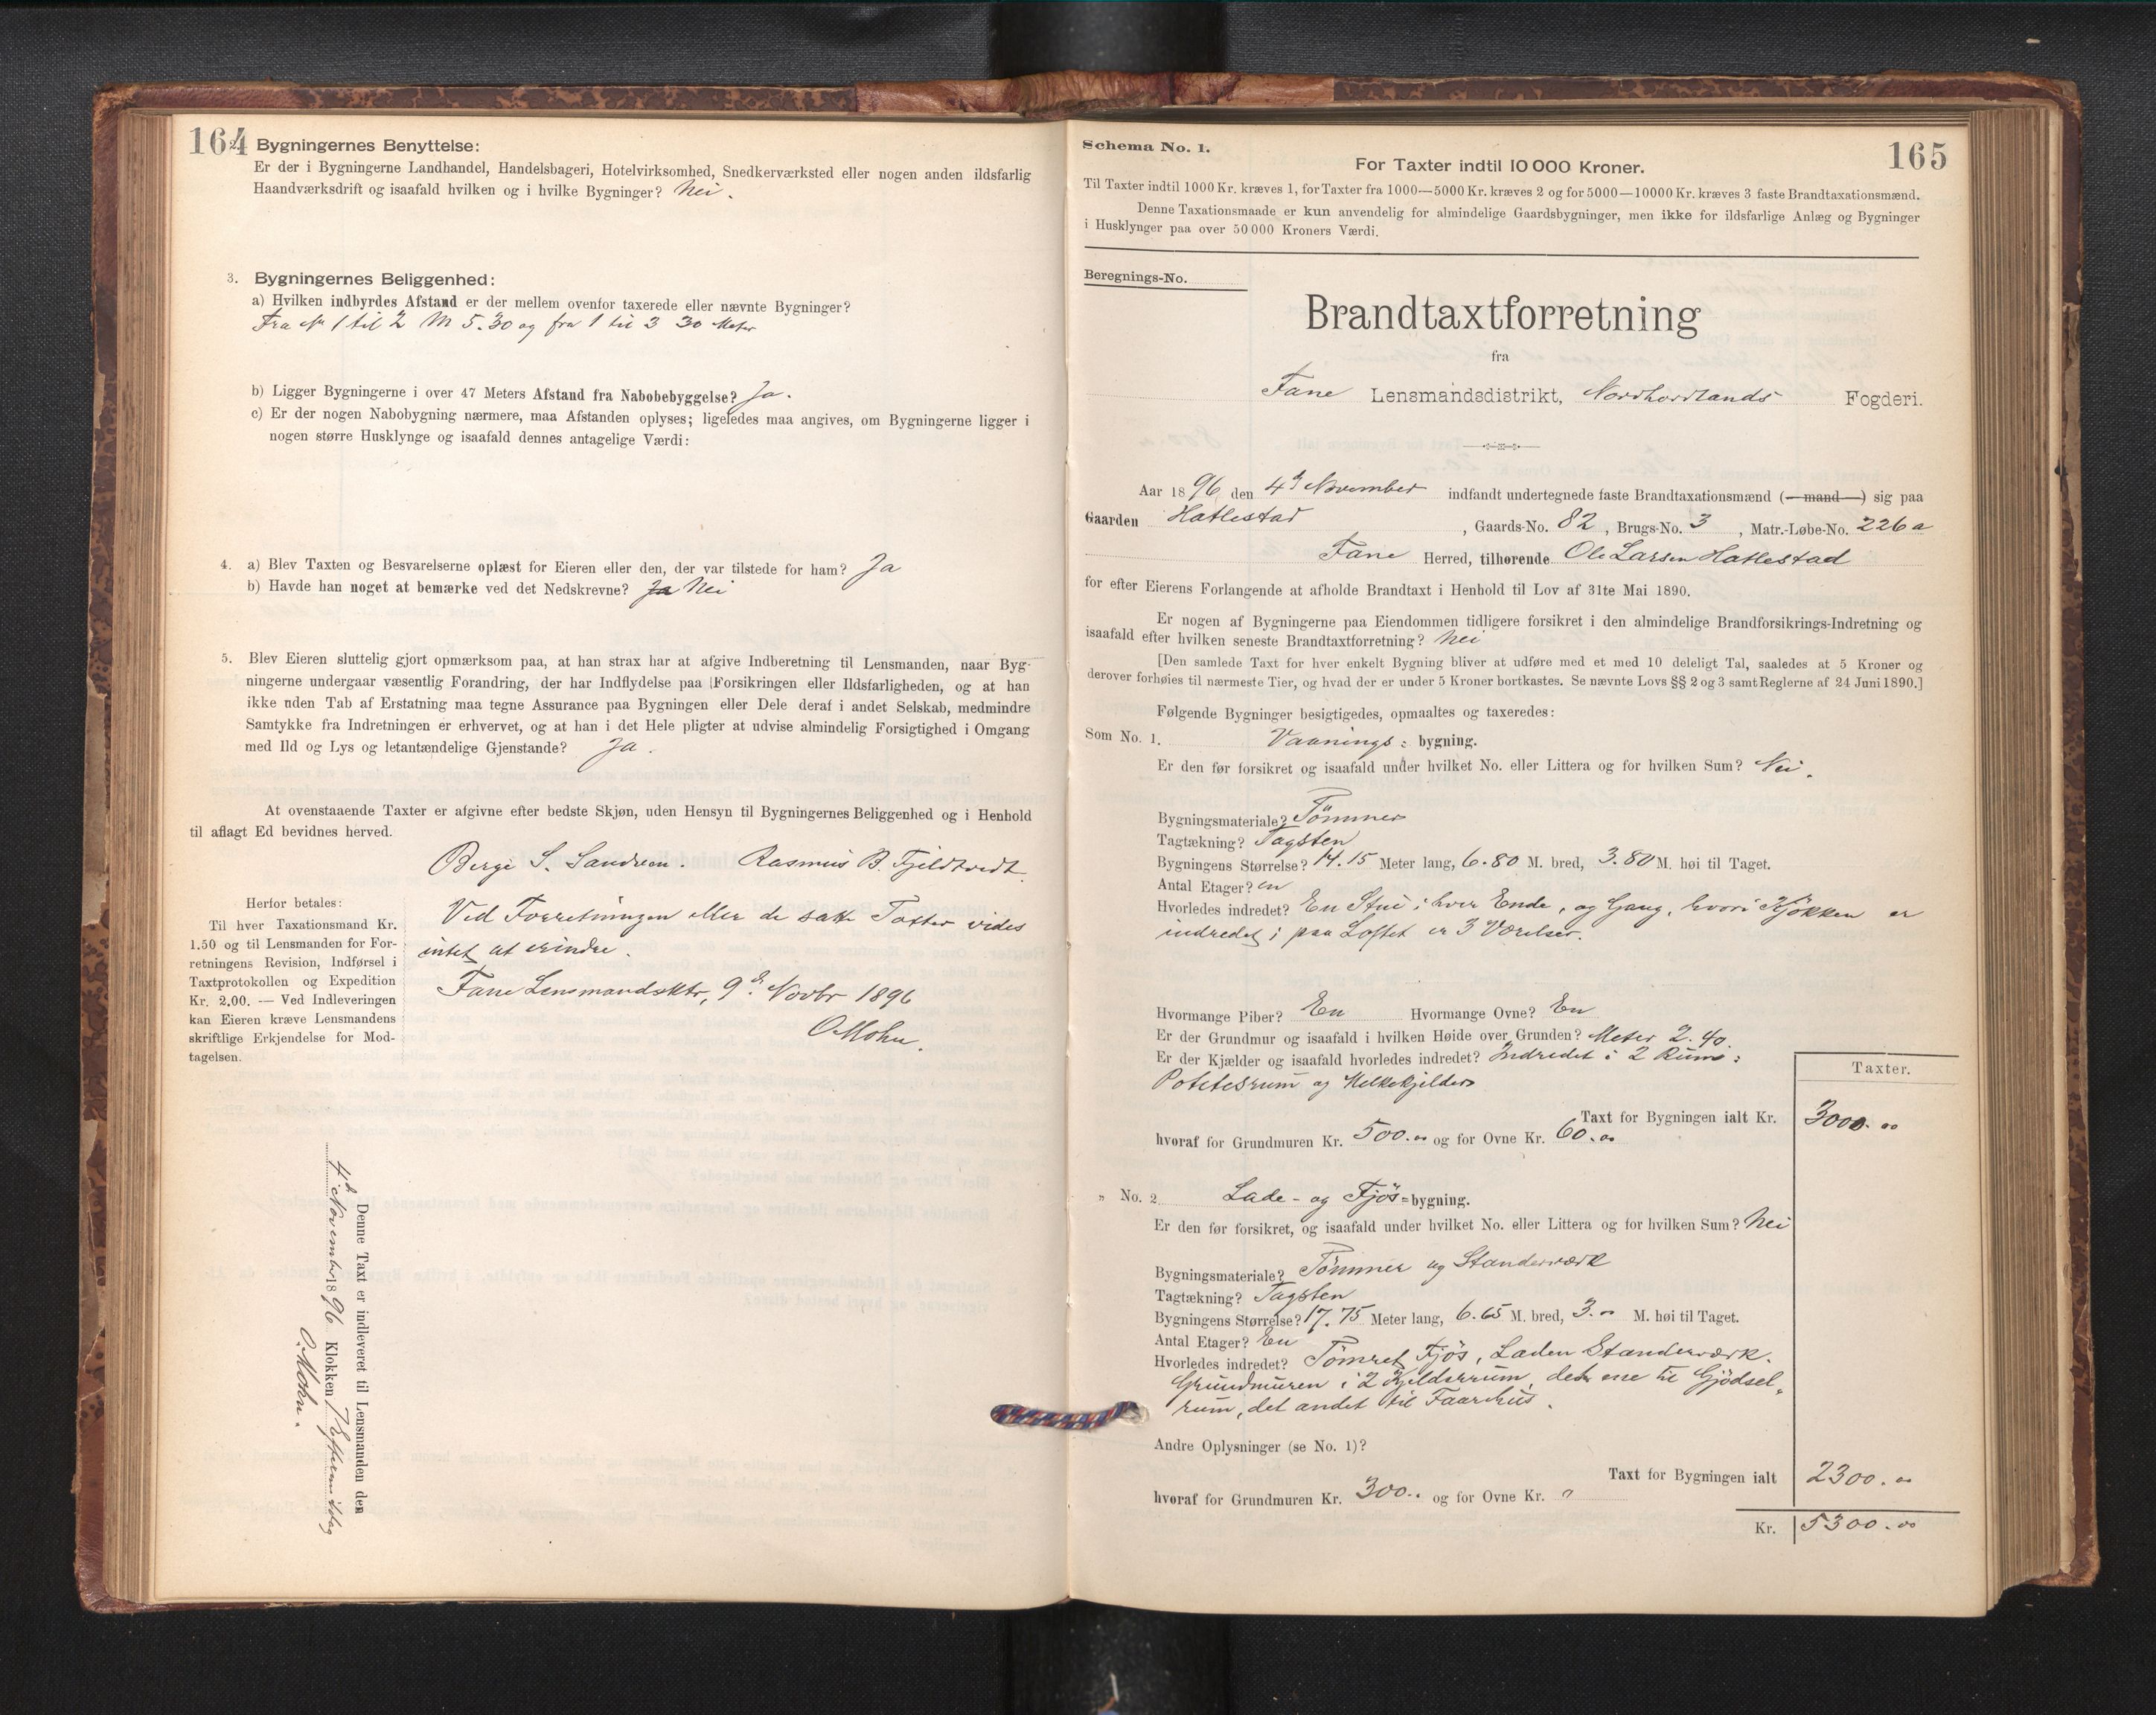 164
Bygningernes Benyttelse:
Er der i Bygningerne Landhandel, Handelsbageri, Hotelvirksomhed, Snedkerværksted eller nogen anden ildsfarlig
Haandværksdrift og isaafald hvilken og i hvilke Bygninger? Nei.
3. Bygningernes Beliggenhed:
a) Hvilken indbyrdes Afstand er der mellem ovenfor taxerede eller nævnte Bygninger?
Fra No 1 til 2 M 5.30 og fra 1 til 3 30 Meter
b) Ligger Bygningerne i over 47 Meters Afstand fra Nabobebyggelse? Ja.
c) Er der nogen Nabobygning nærmere, maa Afstanden oplyses; ligeledes maa angives, om Bygningerne ligger i
nogen større Husklynge og isaafald dennes antagelige Værdi:
4. a) Blev Taxten og Besvarelserne oplæst for Eieren eller den, der var tilstede for ham? Ja
b) Havde han noget at bemærke ved det Nedskrevne? Ja Nei
5. Blev Eieren sluttelig gjort opmærksom paa, at han strax har at afgive Indberetning til Lensmanden, naar Byg-
ningerne undergaar væsentlig Forandring, der har Indflydelse paa Forsikringen eller Ildsfarligheden, og at han
ikke uden Tab af Erstatning maa tegne Assurance paa Bygningen eller Dele deraf i andet Selskab, medmindre
Samtykke fra Indretningen er erhvervet, og at han i det Hele pligter at udvise almindelig Forsigtighed i Omgang
med Ild og Lys og letantændelige Gjenstande? Ja.
At ovenstaaende Taxter er afgivne efter bedste Skjøn, uden Hensyn til Bygningernes Beliggenhed og i Henhold
til aflagt Ed bevidnes herved.
Berge S. Sandven. Rasmus B. Fjeldtvedt.
Herfor betales:
Til hver Taxationsmand Kr.
1.50 og til Lensmanden for For-
retningens Revision, Indførsel i
Taxtprotokollen og Expedition
Kr. 2.00. — Ved Indleveringen
kan Eieren kræve Lensmandens
skriftlige Erkjendelse for Mod-
tagelsen.
Ved Forretningen eller de satte Taxter vides
intet at erindre.
Fane Lensmandsktr, 9de Novbr 1896
O. Mohn.
Denne Taxt er indleveret til Lensmanden den
4de November 1896 Klokken 7 Eftermiddag
O. Mohn.
Schema No. 1.
165
For Taxter indtil 10 000 Kroner.
Til Taxter indtil 1000 Kr. kræves 1, for Taxter fra 1000—5000 Kr. kræves 2 og for 5000—10000 Kr. kræves 3 faste Brandtaxationsmænd.
Denne Taxationsmaade er kun anvendelig for almindelige Gaardsbygninger, men ikke for ildsfarlige Anlæg og Bygninger
i Husklynger paa over 50 000 Kroners Værdi.
Beregnings-No.
Brandtaxtforretning
fra
Fane Lensmandsdistrikt, Nordhordlands Fogderi.
Aar 1896, den 4de November indfandt undertegnede faste Brandtaxationsmænd (—mand—) sig paa
Gaarden Hatlestad, Gaards-No. 82, Brugs-No. 3, Matr.-Løbe-No. 226a
Fane Herred, tilhørende Ole Larsen Hatlestad
for efter Eierens Forlangende at afholde Brandtaxt i Henhold til Lov af 31te Mai 1890.
Er nogen af Bygningerne paa Eiendommen tidligere forsikret i den almindelige Brandforsikrings-Indretning og
isaafald efter hvilken seneste Brandtaxtforretning? Nei
[Den samlede Taxt for hver enkelt Bygning bliver at udføre med et med 10 deleligt Tal, saaledes at 5 Kroner og
derover forhøies til nærmeste Tier, og hvad der er under 5 Kroner bortkastes. Se nævnte Lovs §§ 2 og 3 samt Reglerne af 24 Juni 1890.]
Følgende Bygninger besigtigedes, opmaaltes og taxeredes:
Som No. 1. Vaanings: bygning.
Er den før forsikret og isaafald under hvilket No. eller Littera og for hvilken Sum? Nei.
Bygningsmateriale? Tömmer
Tagtækning? Tagsten
Bygningens Størrelse? 14.15 Meter lang, 6.80 M. bred, 3.80 M. høi til Taget.
Antal Etager? en
Hvorledes indredet? En Stue i hver Ende, og Gang, hvori Kjökken er
indredet; paa Loftet er 3 Værelser.
Hvormange Piber? En Hvormange Ovne? En
Er der Grundmur og isaafald i hvilken Høide over Grunden? Meter 2.40.
Er der Kjælder og isaafald hvorledes indredet? Indredet i 2 Rum:
Potetesrum og Melkekjelder
Taxter.
Taxt for Bygningen ialt Kr. 3000.00
hvoraf for Grundmuren Kr. 500.00 og for Ovne Kr. 60.00
„ No. 2 Lade- og Fjös=bygning.
Er den før forsikret, og isaafald under hvilket No. eller Littera og for hvilken Sum? Nei
Bygningsmateriale? Tömmer og Standerværk
Tagtækning? Tagsten
Bygningens Størrelse? 17.75 Meter lang, 6.65 M. bred, 3.00 M. høi til Taget.
Antal Etager? En
Hvorledes indredet? Tömret Fjös, Laden Standerværk.
Grundmuren i 2 Kjelderrum, det ene til Gjödsel-
rum, det andet til Faarehus.
Andre Oplysninger (se No. 1)?
Taxt for Bygningen ialt 2300.00
hvoraf for Grundmuren Kr. 300.. og for Ovne Kr. "
Kr. 5300.00